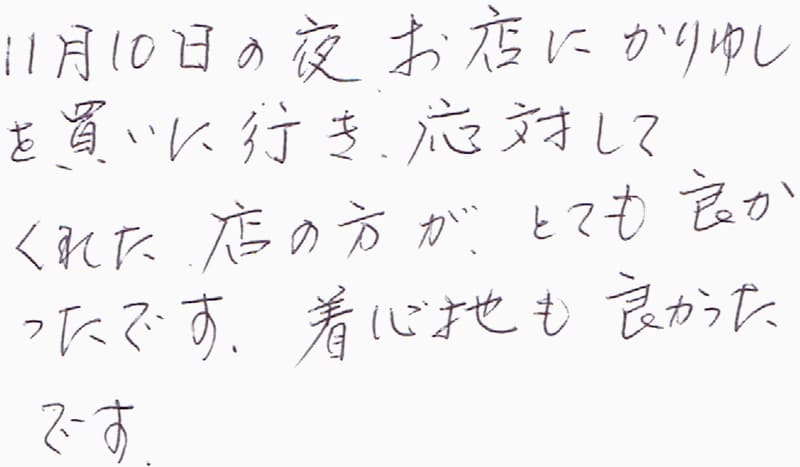 11月10日の夜、お店にかりゆし
を買いに行き、応対して
くれた、店の方が、とても良か
ったです。着心地も良かった
です。